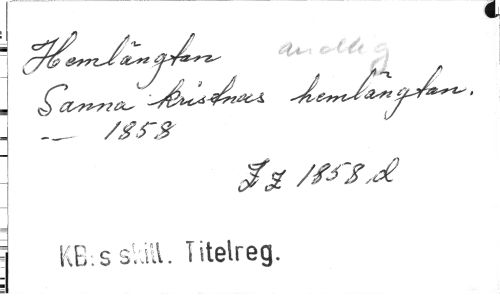 Hemlängtan andlig
Sanna kristnas hemlängtan.
— 1858
Zz 1858 d
KB:s skill. Titelreg.